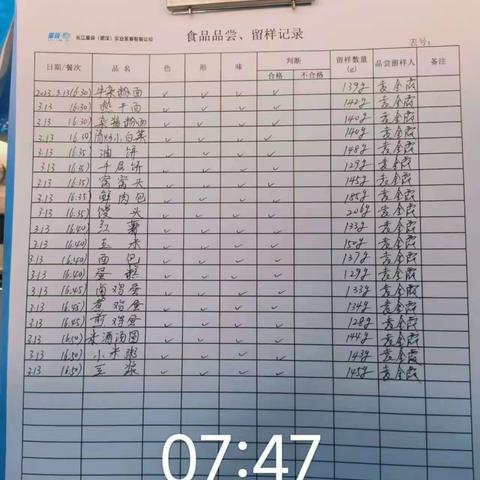 食品品尝、留样记录
表号:
日期/餐次 品名 色 形 味 判断 合格 不合格 留样数量(g) 品尝留样人 备注
2023.3.13(6:30) 牛杂粉面 ✓ ✓ ✓ ✓ 139g 袁金霞
3.13 (6:30) 热干面 ✓ ✓ ✓ ✓ 142g 袁金霞
3.13 (6:30) 杂酱粉面 ✓ ✓ ✓ ✓ 140g 袁金霞
3.13 (6:30) 小白菜 ✓ ✓ ✓ ✓ 140g 袁金霞
3.13 (6:35) 油饼 ✓ ✓ ✓ ✓ 148g 袁金霞
3.13 (6:35) 千层饼 ✓ ✓ ✓ ✓ 129g 袁金霞
3.13 (6:35) 窝窝头 ✓ ✓ ✓ ✓ 145g 袁金霞
3.13 (6:35) 鲜肉包 ✓ ✓ ✓ ✓ 185g 袁金霞
3.13 (6:35) 馒头 ✓ ✓ ✓ ✓ 206g 袁金霞
3.13 (6:40) 红薯 ✓ ✓ ✓ ✓ 133g 袁金霞
3.13 (6:40) 玉米 ✓ ✓ ✓ ✓ 150g 袁金霞
3.13 (6:40) 面包 ✓ ✓ ✓ ✓ 137g 袁金霞
3.13 (6:40) 蛋糕 ✓ ✓ ✓ ✓ 129g 袁金霞
3.13 (6:45) 卤鸡蛋 ✓ ✓ ✓ ✓ 133g 袁金霞
3.13 (6:45) 煮鸡蛋 ✓ ✓ ✓ ✓ 134g 袁金霞
3.13 (6:45) 煎鸡蛋 ✓ ✓ ✓ ✓ 128g 袁金霞
3.13 (6:50) 米酒汤圆 ✓ ✓ ✓ ✓ 144g 袁金霞
3.13 (6:50) 小米粥 ✓ ✓ ✓ ✓ 143g 袁金霞
3.13 (6:50) 豆浆 ✓ ✓ ✓ ✓ 145g 袁金霞
07:47